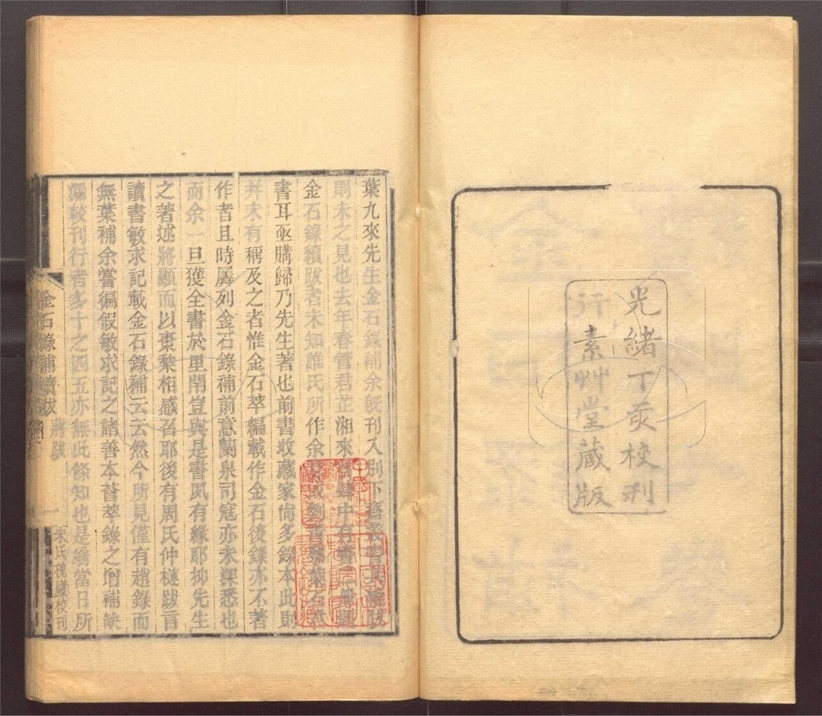 光緒丁亥校刊
行素艸堂藏版
葉九來先生金石錄補余旣刊入別下齋叢書
則未之見也去年春管君芷湘來
金石錄續跋者未知誰氏所作余
書耳亟購歸乃先生著也前書收藏家尙多錄本此則
并未有稱及之者惟金石萃編載作金石後錄亦不著
作者且時屢列金石錄補前意蘭泉司寇亦未深悉也
而余一旦獲全書於里閈豈與是書夙有緣耶抑先生
之著述將顯而以棗棃相感召耶後有周氏仲槤跋言
讀書敏求記載金石錄補云云然今所見僅有趙錄而
無葉補余嘗徧假敏求記之諸善本薈萃錄之增補缺
漏較刊行者多十之四五亦無此條知也是翁當日所
金石錄補續跋
蔣跋
一
朱氏槐廬校刊